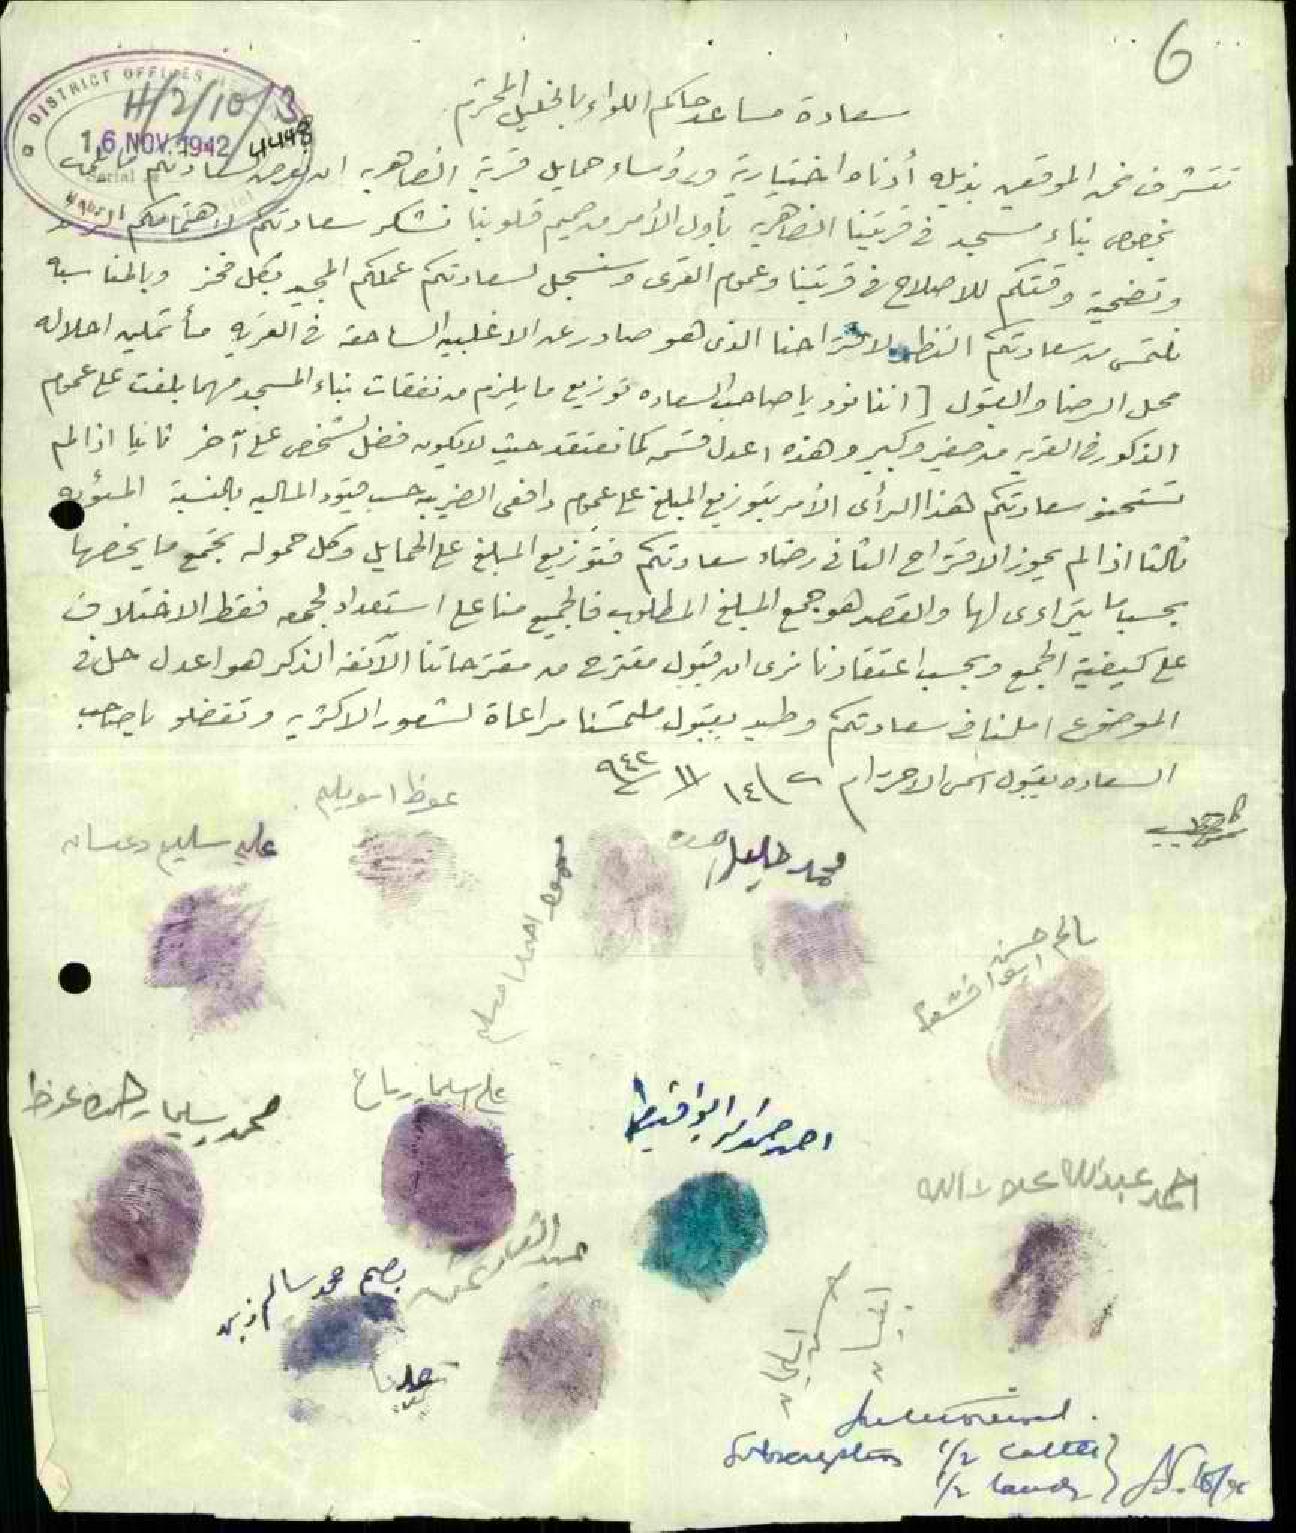 6
DISTRICT OFFICES
H/2/10/3
16 NOV. 1942
4448
سعادة مساعد حاكم اللواء بالخليل المحترم
نتشرف نحن الموقعين بذيله أدناه اختيارية ورؤساء حمايل قرية الضاهريه ان نعرض لسعادتكم ما يلي
بخصوص بناء مسجد في قريتنا الضاهريه بأول الأمر من صميم قلوبنا نشكر سعادتكم لاهتمامكم
وتضحية وقتكم للاصلاح في قريتنا وعموم القرى وسنسجل لسعادتكم عملكم المجيد بكل فخر وبالمناسبه
نلتمس من سعادتكم النظر لاقتراحنا الذي هو صادر عن الاغلبيه الساحقة في القريه متأملين احلاله
محل الرضا والقبول [ اننا نود يا صاحب السعاده توزيع ما يلزم من نفقات بناء المسجد مهما بلغت على عموم
الذكور في القريه من صغير وكبير وهذه اعدل قسمه كما نعتقد حيث لا يكون فضل لشخص على آخر ثانيا اذا لم
تستحسنو سعادتكم هذا الرأي الأمر بتوزيع المبلغ على عموم دافعي الضريبه حسب قيود الماليه بالنسبة المئويه
ثالثا اذا لم يحوز الاقتراح الثاني رضاء سعادتكم فتوزيع المبلغ على الحمايل وكل حموله تجمع ما يخصها
بحسب ما يتراءى لها والقصد هو جمع المبلغ المطلوب فالجميع منا على استعداد لجمعه فقط الاختلاف
على كيفية الجمع وبحسب اعتقادنا نرى ان قبول مقترح من مقترحاتنا الآنفة الذكر هو اعدل حل في
الموضوع املنا في سعادتكم وطيد بقبول ملتمسنا مراعاة لشعور الاكثريه وتفضلو يا صاحب
السعاده بقبول اسمى الاحترام ١٤/١١/٩٤٢
عوظ اسويلم
علي سليم دعسان
محمد خليل
سالم حسن
علي سليمان رباع
محمد سليمان عوظ
احمد عبدالله
بصم محمد سالم
عبد القادر
Subscription 1/2 cattle
1/2 lands